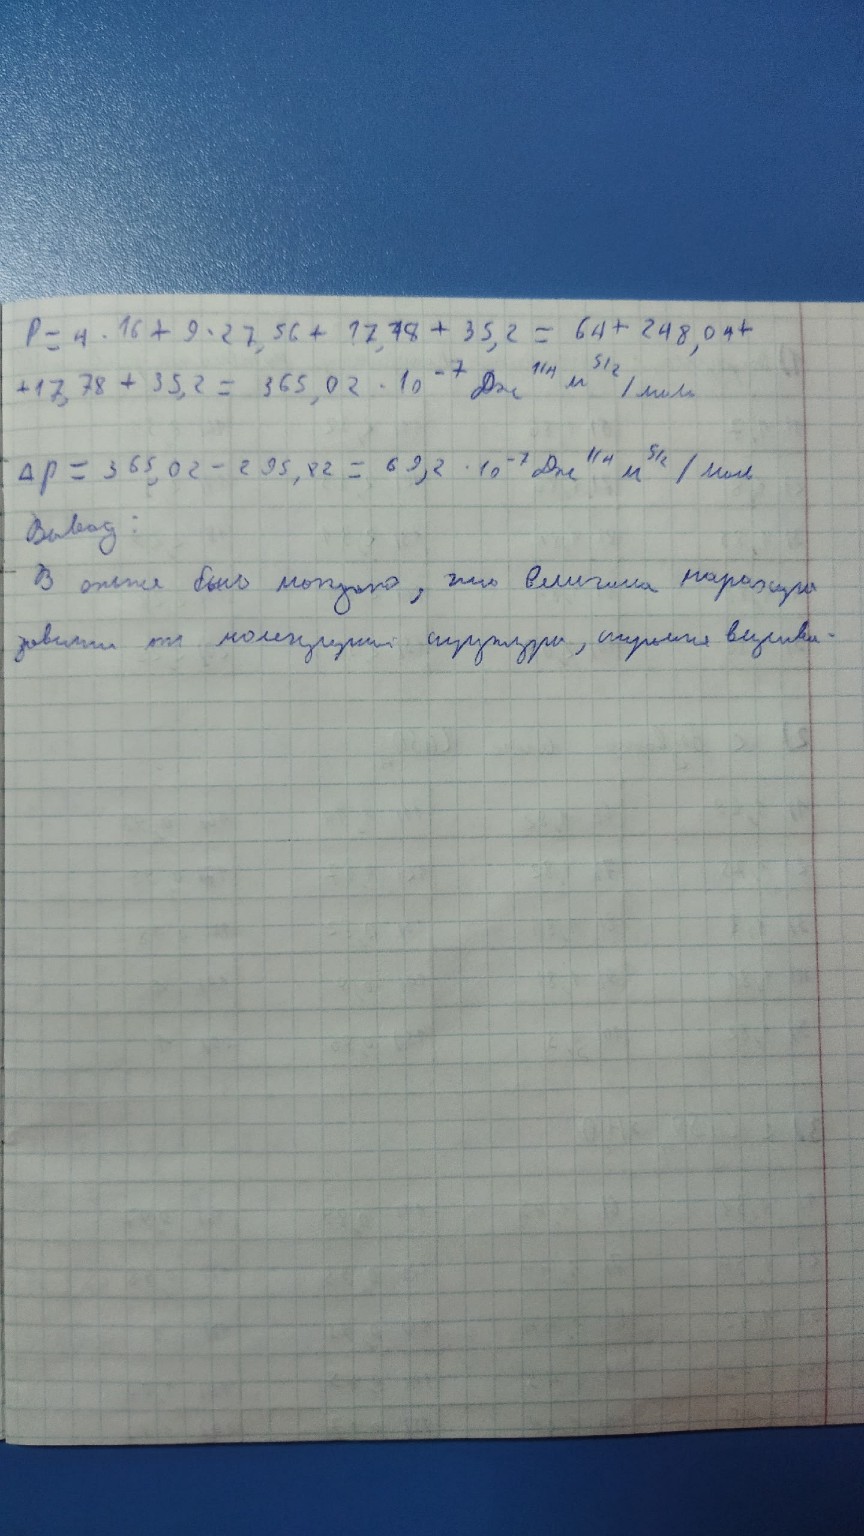 P = 4 · 16 + 9 · 27,56 + 17,78 + 35,2 = 64 + 248,04 +
+ 17,78 + 35,2 = 365,02 · 10⁻⁷ Дж^1/4 м^5/2 / моль
ΔP = 365,02 - 295,82 = 69,2 · 10⁻⁷ Дж^1/4 м^5/2 / моль
Вывод:
В опыте было показано, что величина парахора
зависит от молекулярной структуры, строения